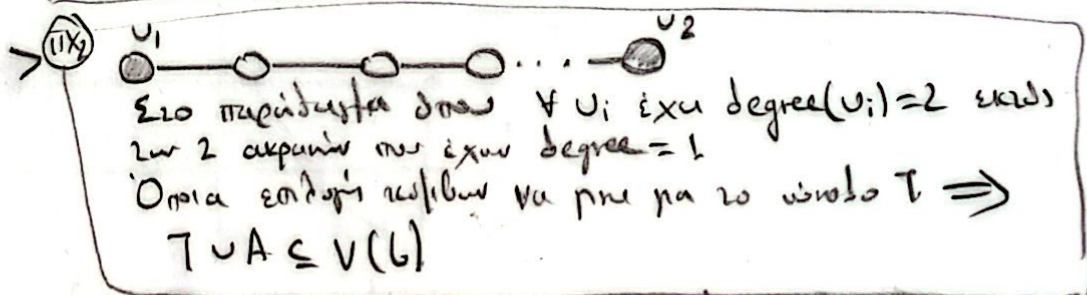 πχ₂ υ₁ υ₂
Στο παράδειγμα όπου ∀ υᵢ έχει degree(υᵢ)=2 εκτός
των 2 ακριανών που έχουν degree = 1
Όποια επιλογή κόμβων να γίνει για το σύνολο T ⇒
T ∪ A ⊆ V(G)